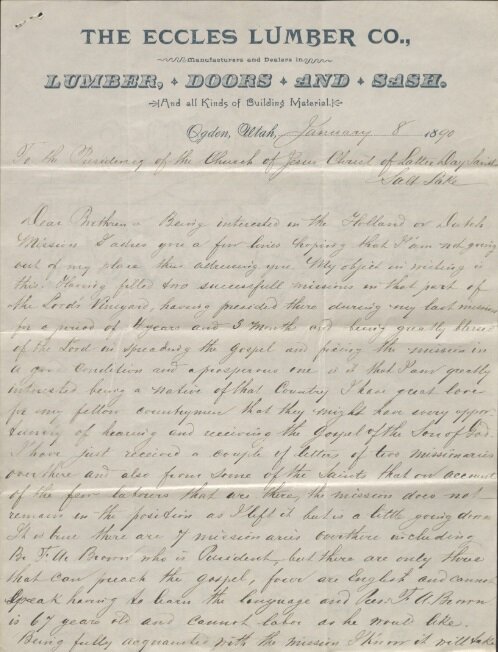 THE ECCLES LUMBER CO.,
Manufacturers and Dealers in
LUMBER, DOORS AND SASH.
And all Kinds of Building Material.
Ogden, Utah, January 8 1890
To the Presidency of the Church of Jesus Christ of Latter Day Saints
Salt Lake
Dear Brethren Being interested in the Holland or Dutch
Mission I adres you a few lines hoping that I am not going
out of my place thus adressing you. My object in writing is
this. Having filled two successfull missions in that part of
the Lord's Vineyard, having presided there during my last mission
for a period of years and 3 Month and being greatly blessed
of the Lord in spreading the gospel and the mission in
a good condition and a prosperous one is it that I am greatly
interested being a native of that Country I have great love
for my fellow countrymen that they might have every oppor
tunity of hearing and receiving the Gospel of the Son of God.
I have just received a couple of letters of two missionaries
over there and also from some of the Saints that on account
of the few labours that are there, the mission does not
remain in the position as I left it but is a little going down
It is true there are 7 missionaries over there including
Br F. A. Brown who is President, but there are only three
that can preach the gospel, four are English and cannot
speak having to learn the language and Pres. F. A. Brown
is 67 years old and cannot labor as he would like.
Being fully acquainted with the mission I know it will take